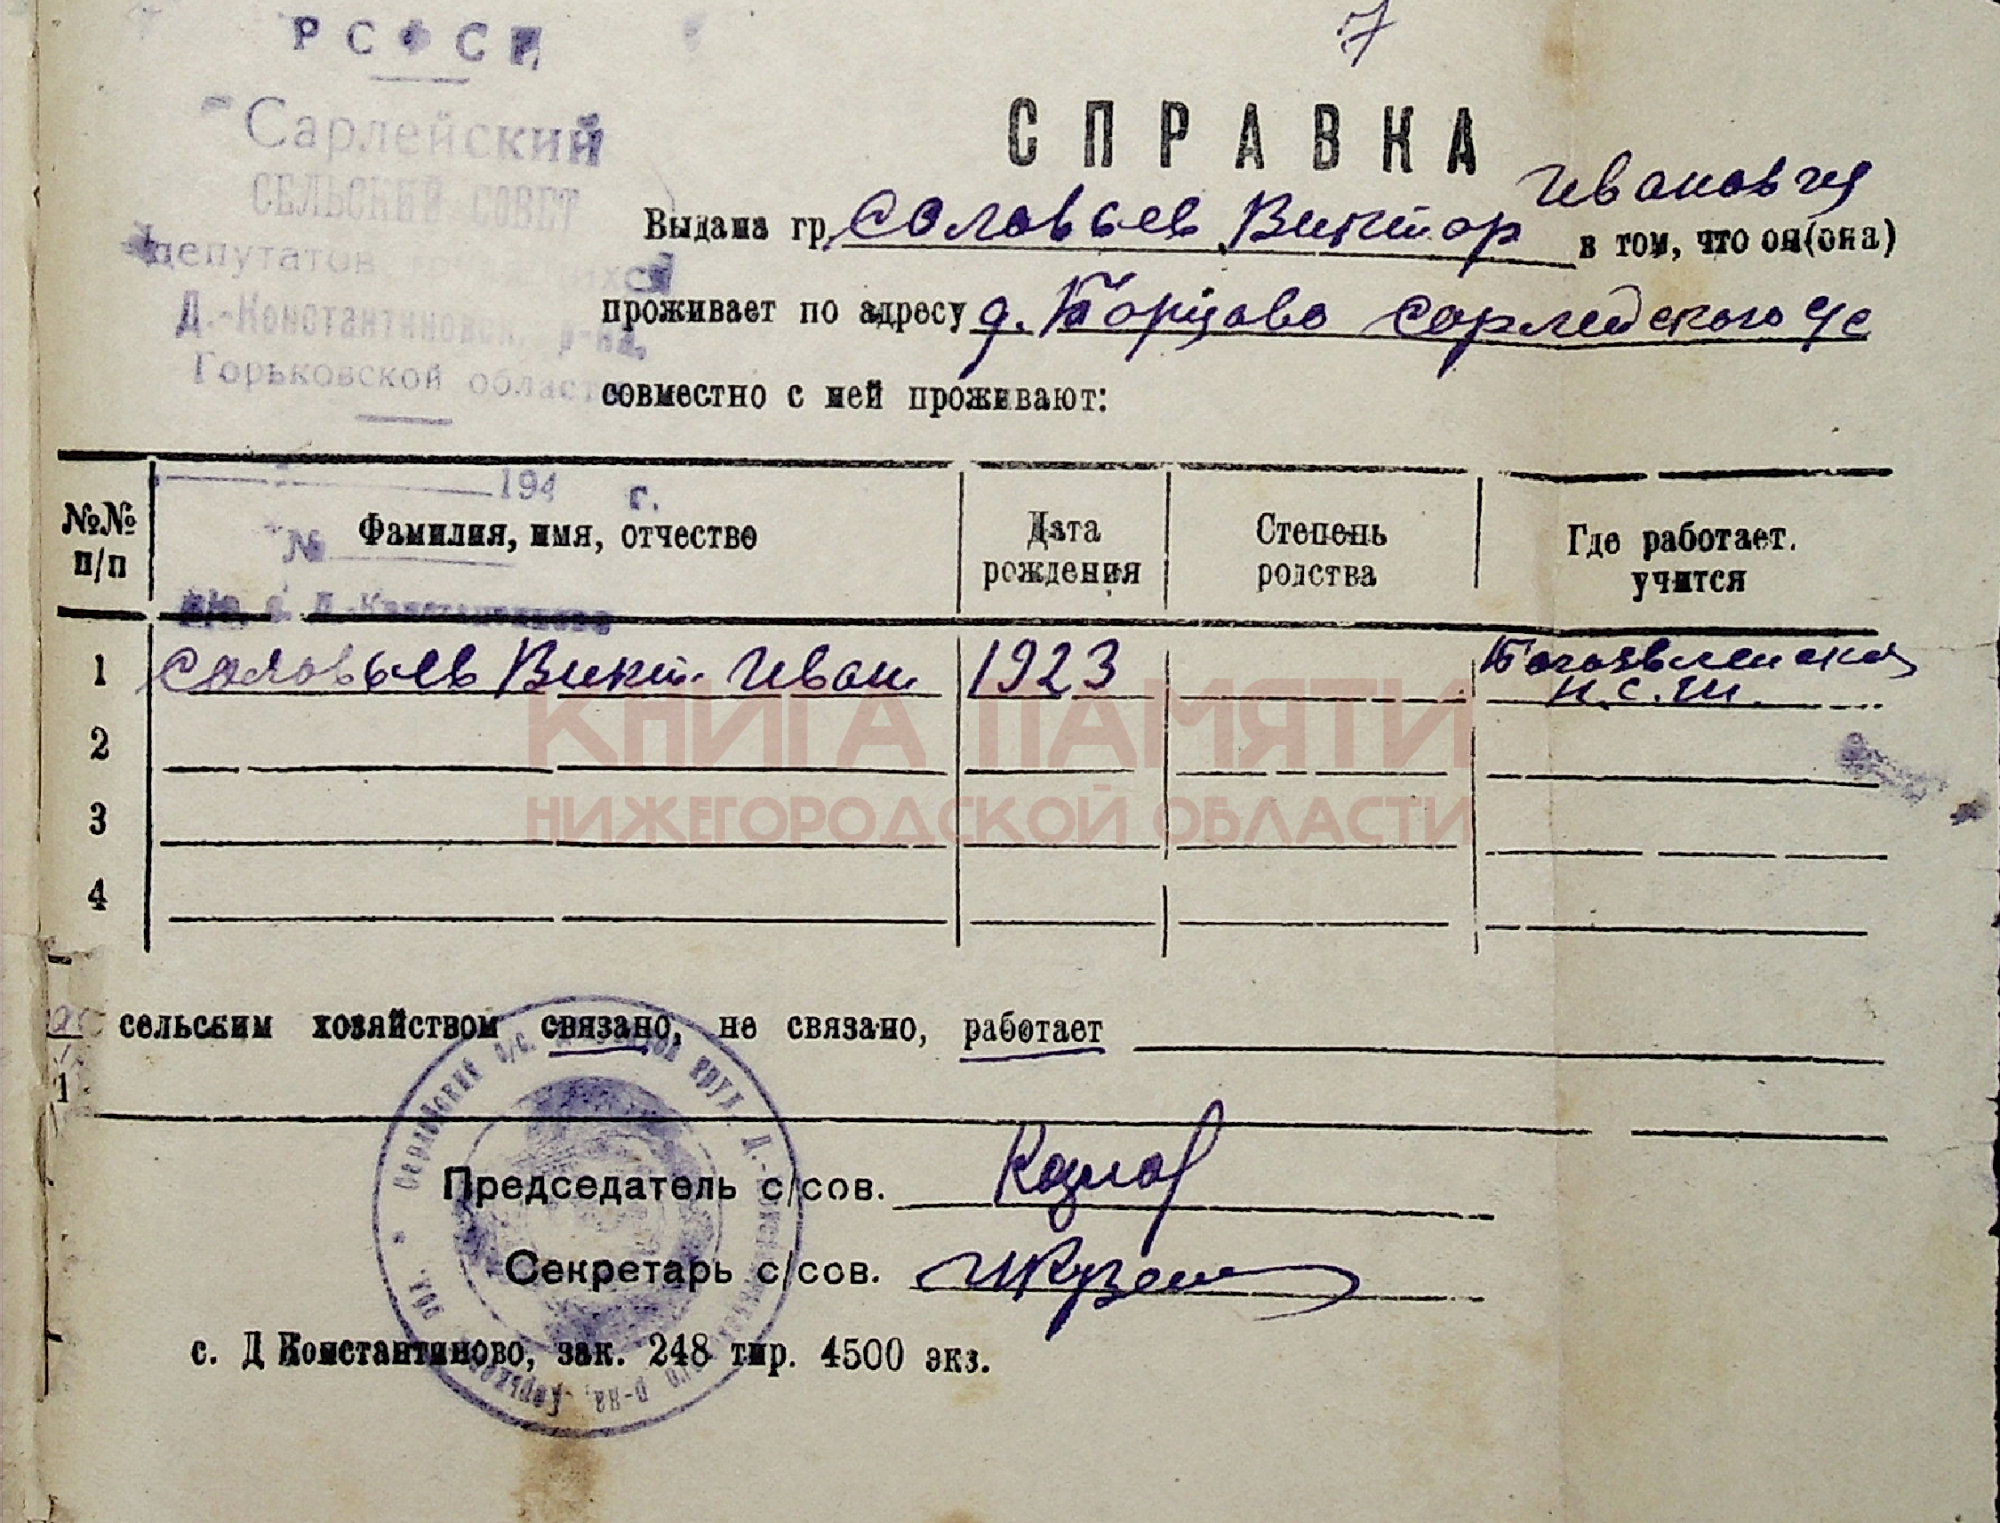 7
РСФСР
Сарлейский
СЕЛЬСКИЙ СОВЕТ
депутатов трудящихся
Д.-Константиновск. р-на,
Горьковской области
194 г.
№
с. Д.-Константиново
СПРАВКА
Выдана гр. Соловьев Виктор Иванович в том, что он(она)
проживает по адресу д. Борцово Сарлейского с/с
совместно с ней проживают:
№№ п/п Фамилия, имя, отчество Дата рождения Степень родства Где работает. учится
1 Соловьев Викт. Иван. 1923 Богоявленская н.с.ш.
2
3
4
КНИГА ПАМЯТИ
НИЖЕГОРОДСКОЙ ОБЛАСТИ
сельским хозяйством связано, не связано, работает
1
Председатель с/сов. Козлов
Секретарь с/сов.
с. Д Константиново, зак. 248 тир. 4500 экз.